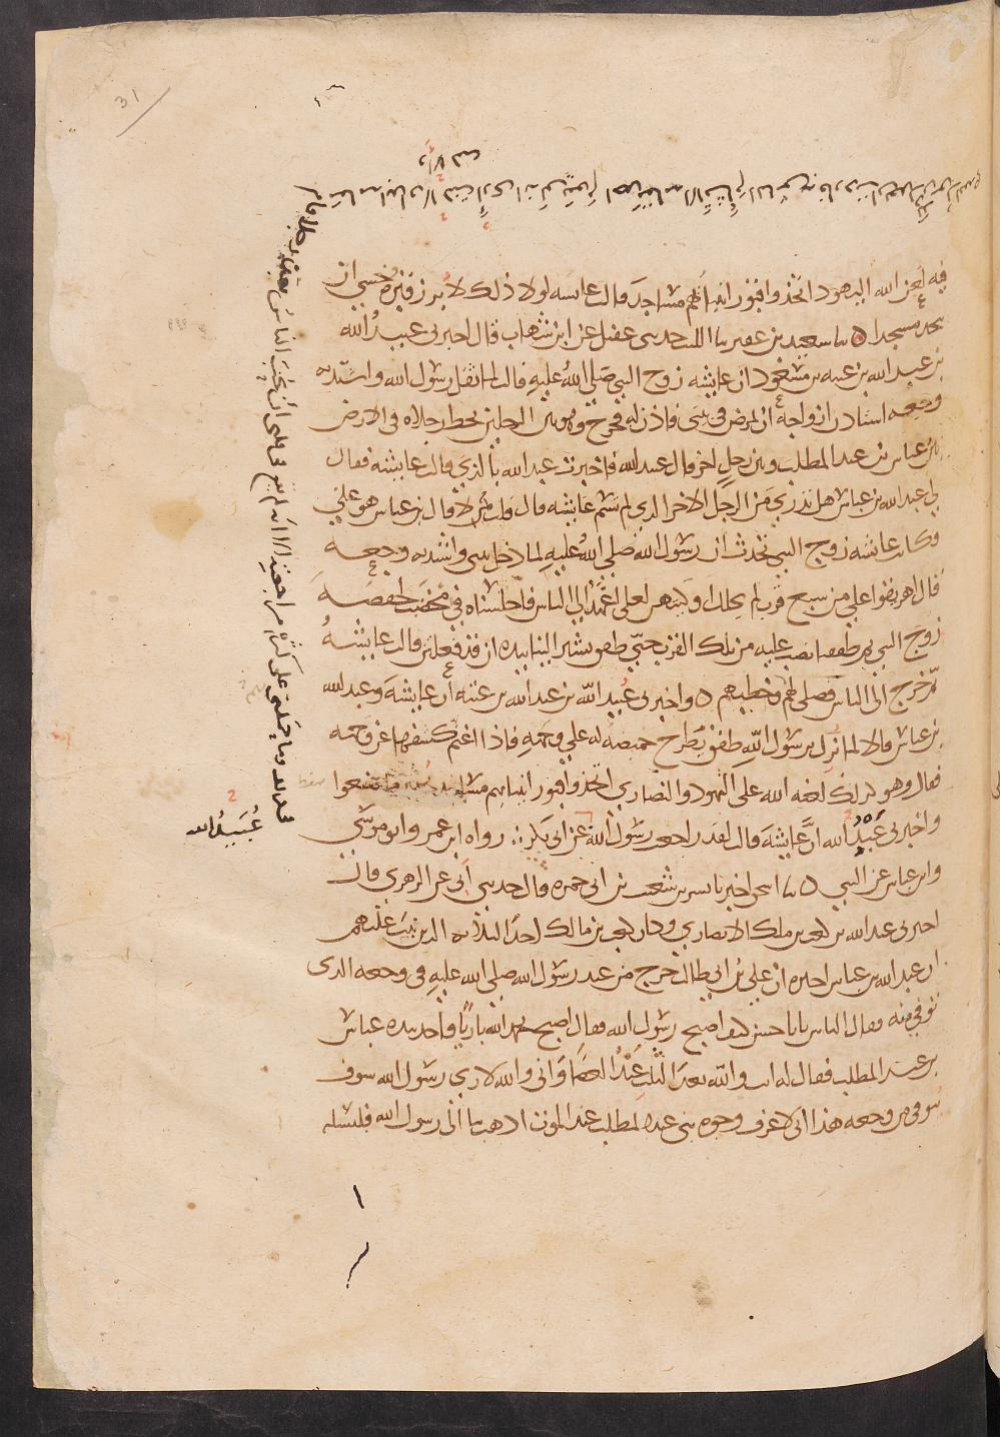 فيه لعن الله اليهود اتخذوا قبور انبيائهم مساجد قالت عائشه لولا ذلك لأبرز قبره خشي ان
يتخذ مسجدا ٥ ثنا سعيد بن عفير ثنا الليث حدثني عقيل عن ابن شهاب قال اخبرني عبيدُ الله
بن عبد الله بن عتبه بن مسعود ان عايشه زوج النبي صلى اللهُ عليه قالت لما ثقل رسُول الله واشتد به
وجعه استاذن ازواجه ان يمرض في بيتي فاذن له فخرج وهو بين الرجلين تخط رجلاه في الارض
بين عباس بن عبد المطلب وبين رجل اخر قال عبيد الله فاخبرت عبد الله بالذي قالت عايشه فقال
لي عبد الله بن عباس هل تدري من الرجل الاخر الذي لم تسم عايشه قال قلت لا قال بن عباس هو علي
وكانت عايشه زوج النبي تحدث ان رسول الله صلى اللهُ عليه لما دخل بيتي واشتد به وجعه
قال اهريقوا علي من سبع قرب لم تحلل اوكيتهن لعلي اعهد الى الناس فاجلسناه في مخضب لحفصه
زوج النبي ثم طفقنا نصب عليه من تلك القرب حتى طفق يشير الينا بيده ان قد فعلتن قالت عايشهُ
ثم خرج الى الناس فصلى لهم وخطبهم ٥ واخبرني عُبيد الله بن عبد الله بن عتبه ان عايشهَ وعبد الله
بن عباس قالا لما نزل برسُول اللهِ طفق يطرح خميصه له على وجهه فاذا اغتم كشفها عن وجهه
فقال وهو كذلك لعنه الله على اليهود والنصارى اتخذوا قبور انبيايهم مساجد يحذر ما صنعوا
واخبرني عبيدُ الله انَّ عايشهَ قالت لقد راجعت رسُول الله
عن ابي بكر :. رواه ابن عمر وابو موسى
وابن عباس عن النبي ٥ ثنا اسحق اخبرنا بشر بن شعيب بن ابي حمزه قال حدثني أبي عن الزهري قال
اخبرني عبد الله بن كعب بن ملك الانصاري وكان كعب بن مالك احدَ الثلاثه الذين تيبَ عليهم
ان عبد الله بن عباس اخبره ان علي بن ابي طالب خرج من عند رسُول الله صلى الله عليه في وجعه الذي
توفي فيه فقال الناس يا ابا حسن كيف اصبح رسُول الله فقال اصبح بحمد الله بارئًا فاخذ بيده عباسُ
بن عبد المطلب فقال له انت والله بعد الثلث عَبْدُ العصَا واني والله لاري رسُول الله سوف
يتوفى من وجعه هذا اني لاعرف وجوه بني عبد المطلب عند الموت اذهب بنا الى رسول الله فلنسئله
في ذلك وما حملني على كثره مراجعته الا انه لم يقع في قلبي ان يحب الناس بعده رجلا قام
عُبَيدُ الله
31